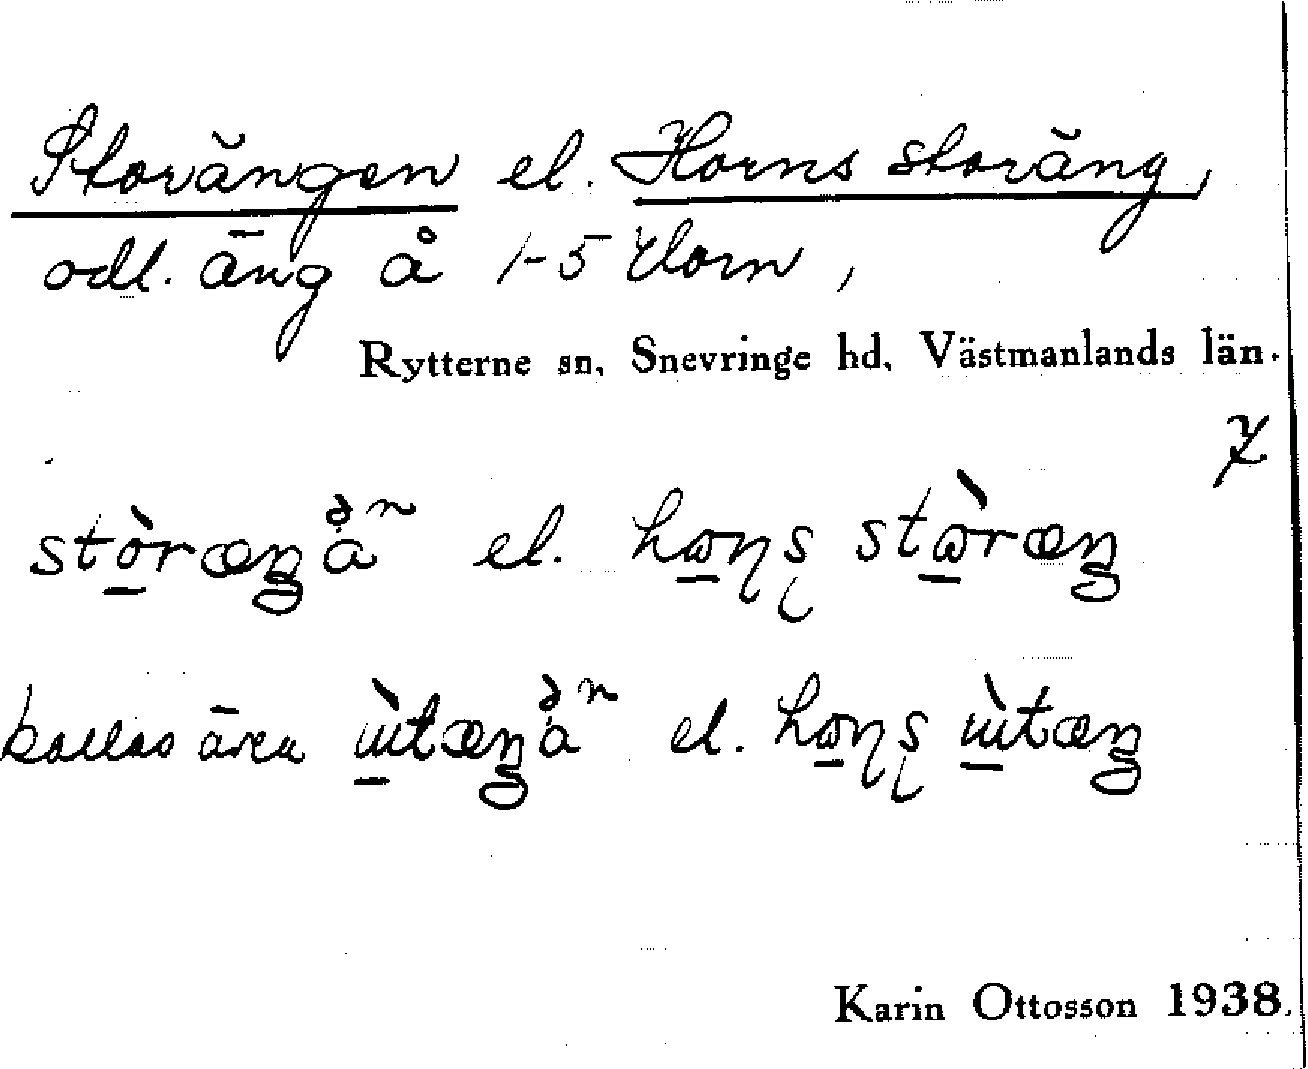 Storängen el. Horns storäng,
odl. äng å 1-5 Horn,
Rytterne sn, Snevringe hd, Västmanlands län.
stòræŋån el. hɷɳʂ stɷ̀ræŋ
kallas även ɯ̀tæŋån el. hɷɳʂ ɯ̀tæŋ
Karin Ottosson 1938.